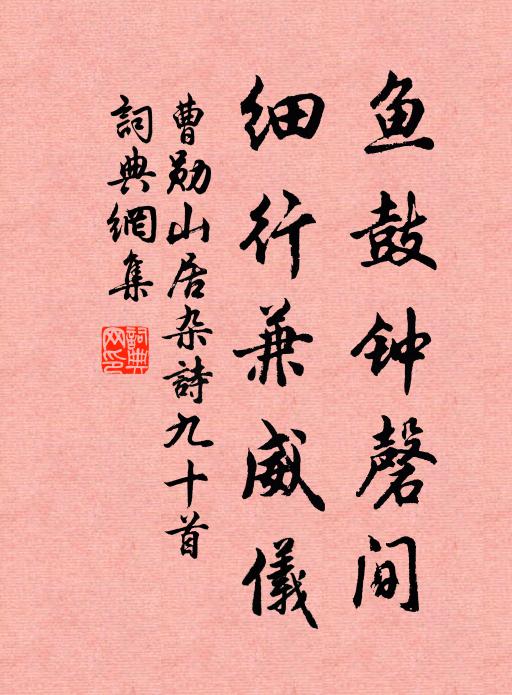 鱼鼓钟磬间
细行兼威仪
曹勋山居杂詩九十首
詞典網集
詞典网印